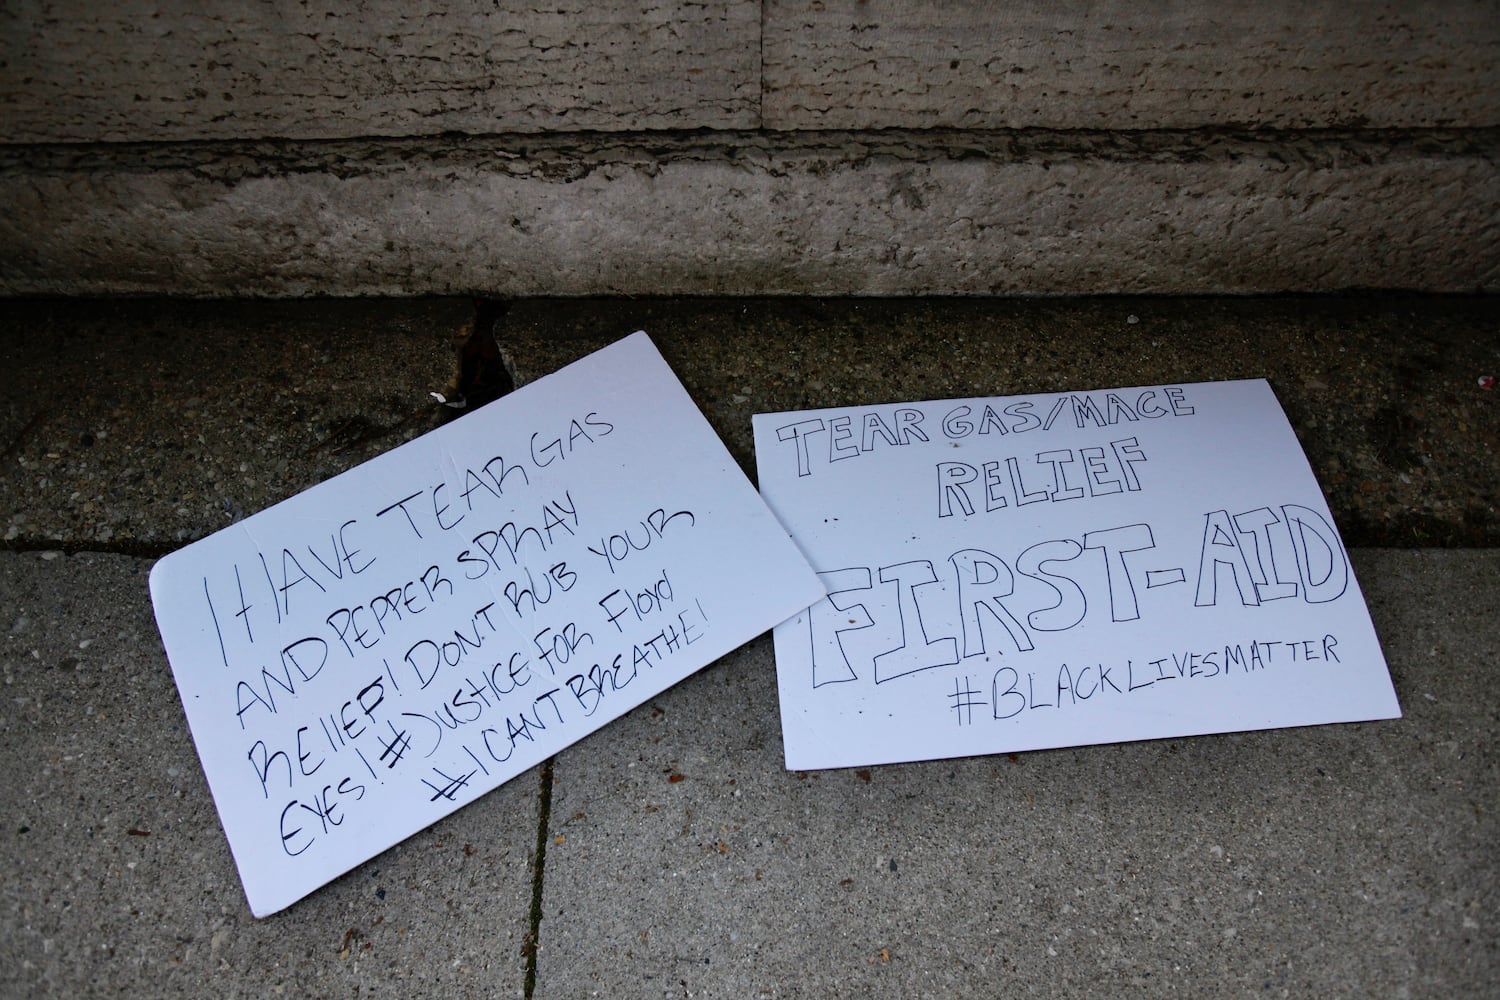 I HAVE TEAR GAS
AND PEPPER SPRAY
RElIEF! DON'T RUB YOUR
EYES! #JUSTICE FOR Floyd
#ICANTBREATHE!
TEAR GAS/MACE
RELIEF
FIRST-AID
#BLACKLIVESMATTER